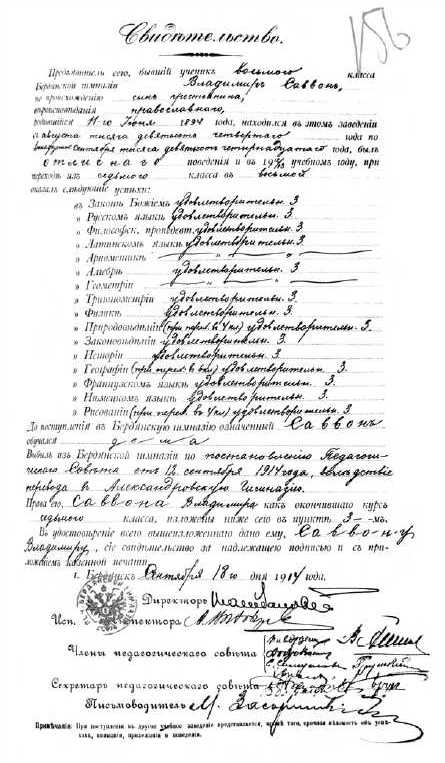 Свидѣтельство.
Предъявитель сего, бывшій ученикъ восьмого класса
Бердянской гимназіи Владимиръ Саввонъ,
по происхожденію сынъ крестьянина,
вѣроисповѣданія православнаго,
родившійся 11го Іюня 1894 года, находился въ этомъ заведеніи
съ августа тысяча девятьсотъ четвертаго года по
сентября тысяча девятьсотъ четырнадцатаго года, былъ
отличнаго поведенія и въ 19 учебномъ году, при
переходѣ изъ седьмого класса въ восьмой
оказалъ слѣдующіе успѣхи:
въ Законѣ Божіемъ удовлетворительн. 3
„ Русскомъ языкѣ удовлетворительн. 3
„ Философск. пропедевт. удовлетворительн. 3
„ Латинскомъ языкѣ удовлетворительн. 3.
„ Ариѳметикѣ — „ — „ —
„ Алгебрѣ удовлетворительн. 3.
„ Геометріи — „ — „ —
„ Тригонометріи удовлетворительн. 3.
„ Физикѣ удовлетворительн. 3.
„ Природовѣдѣніи (при перех. въ 4 кл) удовлетворительн. 3.
„ Законовѣдѣніи удовлетворительн. 3.
„ Исторіи удовлетворительн. 3.
„ Географіи (при перех. въ кл) удовлетворительн. 3.
„ Французскомъ языкѣ удовлетворительн. 3.
„ Нѣмецкомъ языкѣ удовлетворительн. 3.
„ Рисованіи (при перех. въ кл) удовлетворительн. 3.
До вступленія въ Бердянскую гимназію означенный Саввонъ
обучался дома
Выбылъ изъ Бердянской гимназіи по постановленію Педагоги-
ческаго Совѣта отъ 12 сентября 1914 года, вслѣдствіе
перевода въ Александровскую Гимназію.
Права его, Саввона Владимира какъ окончившаго курсъ
седьмого класса, изложены ниже сего въ пунктѣ 3-мъ.
Въ удостовѣреніе всего вышеизложеннаго дано ему, Саввону
Владимиру, сіе свидѣтельство за надлежащею подписью и съ при-
ложеніемъ казенной печати.
г. Бердянскъ, Сентября 18го дня 1914 года.
Директоръ
Исп. Инспектора
Члены педагогическаго совѣта
Секретарь педагогическаго совѣта
Письмоводитель
Примѣчаніе: При поступленіи въ другое учебное заведеніе представляется, кромѣ того, срочная вѣдомость объ успѣ-
хахъ, вниманіи, прилежаніи и поведеніи.